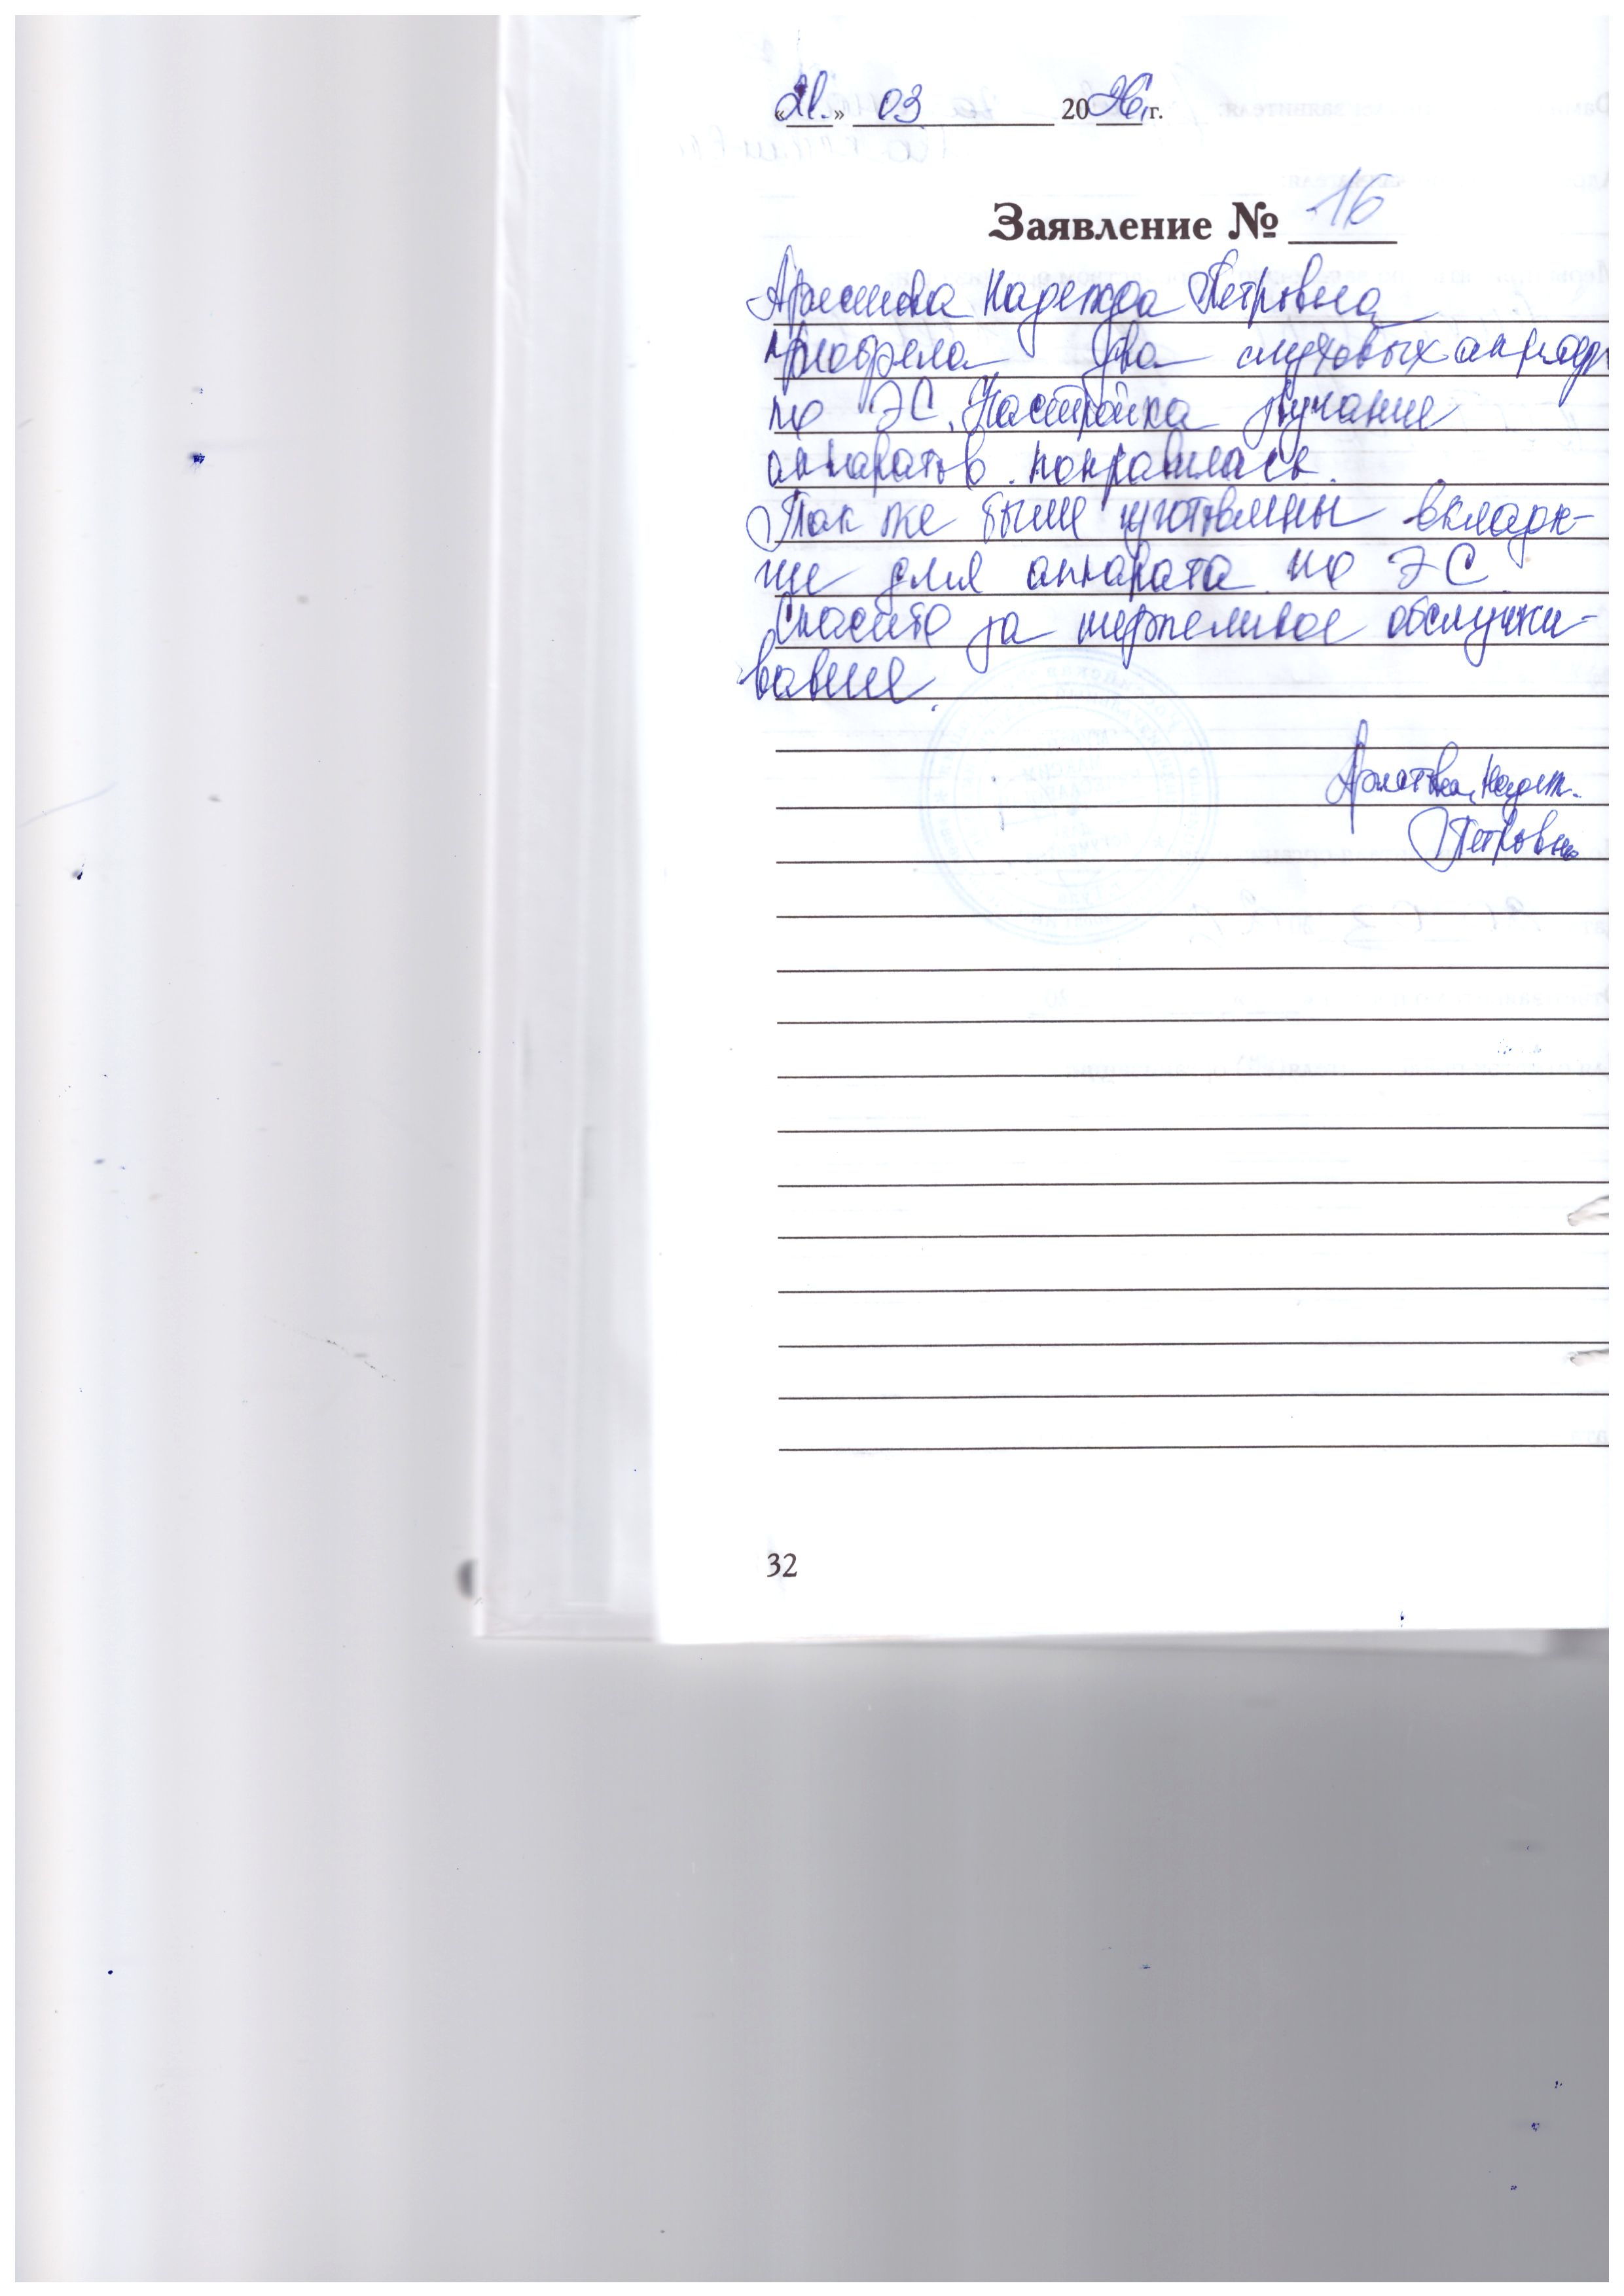 «21.» 03 2026 г.
Заявление № 16
Надежда Петровна
приобрела два слуховых аппара
по ЭС. Настройка звучание
аппаратов понравилась.
Так же были изготовлены вклады-
ши для аппарата по ЭС.
Спасибо за терпеливое обслужи-
вание.
Надеж.
Петровна
32